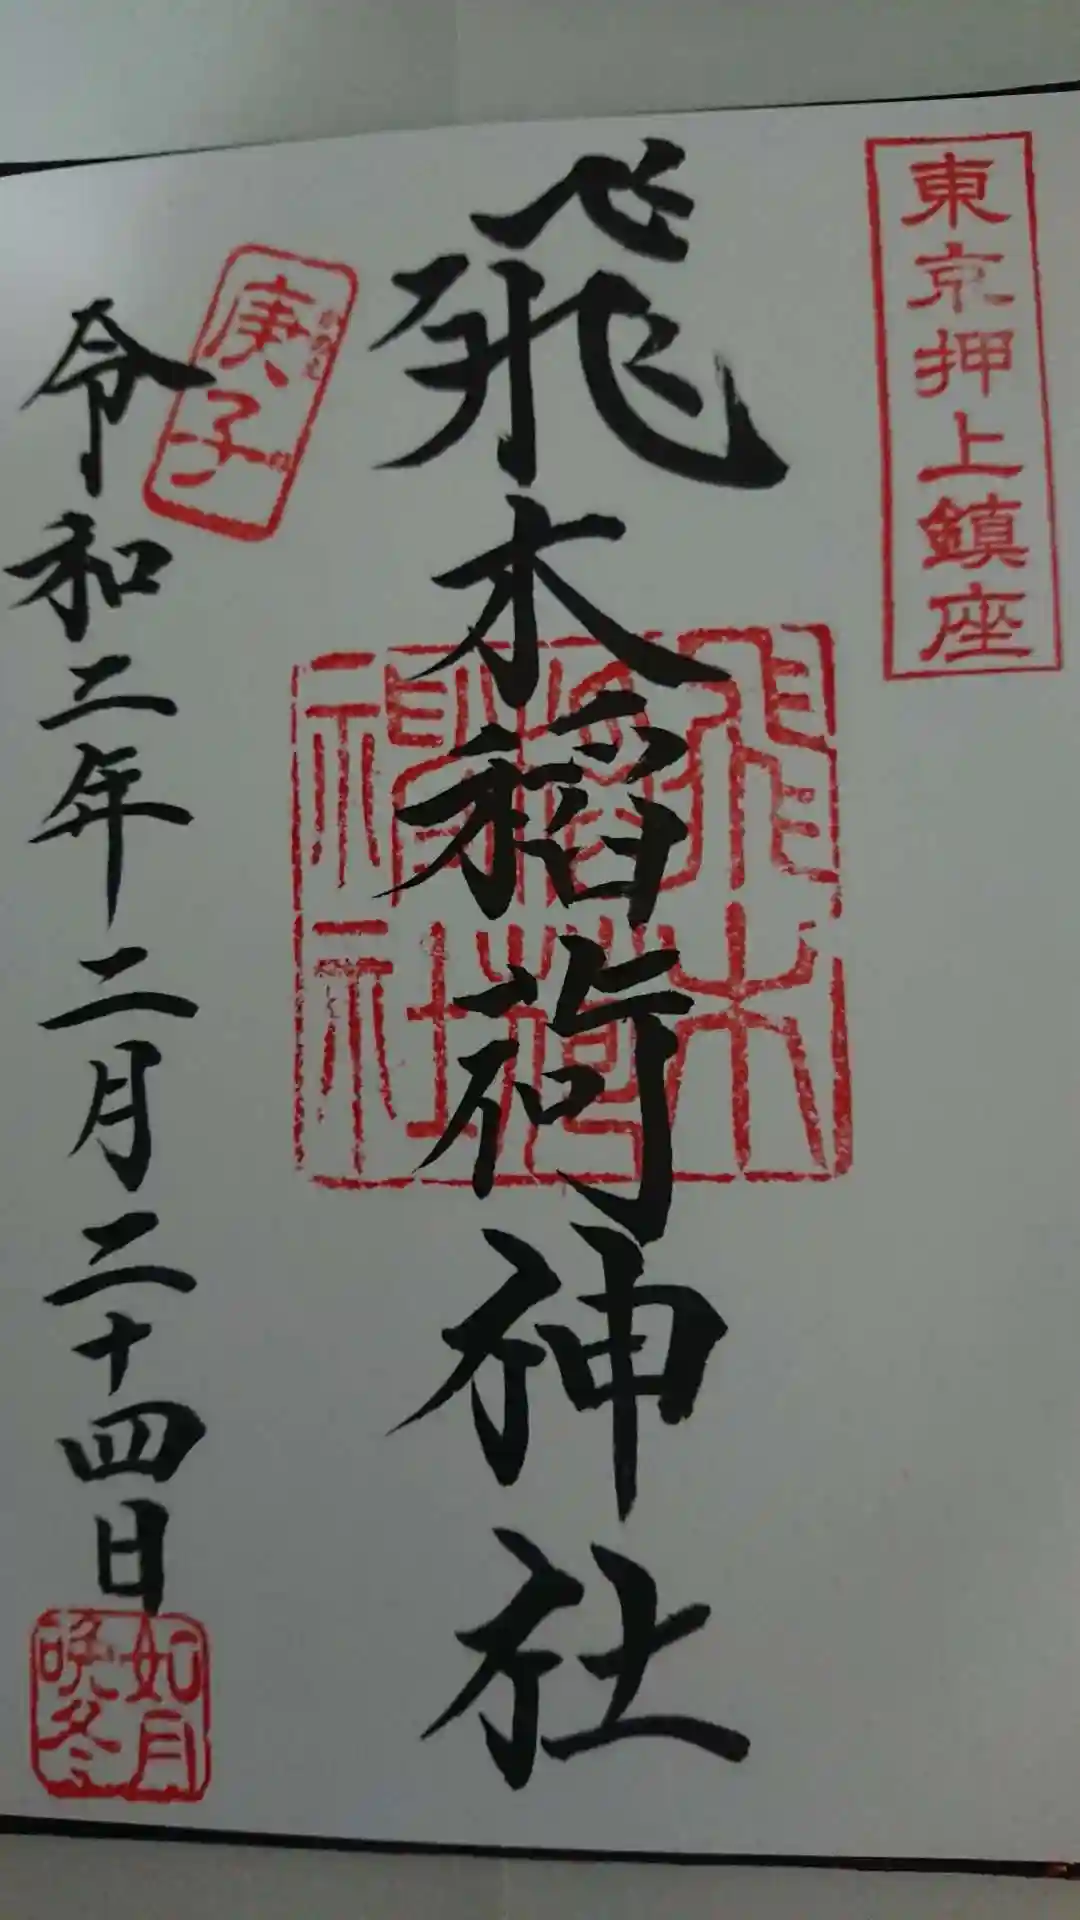 東京押上鎮座
飛木稲荷神社
飛木
稲荷
神社
庚子
令和二年二月二十四日
如月
晩冬